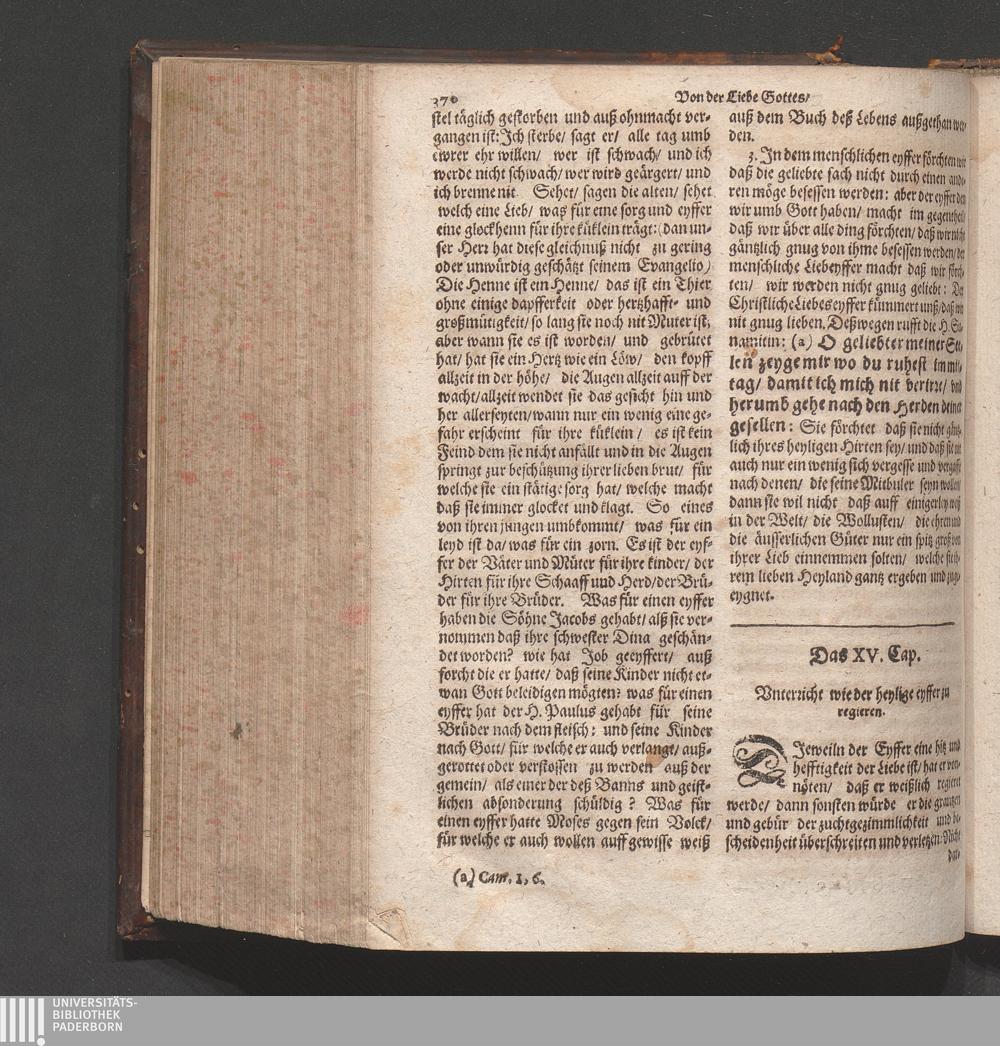 370
Von der Liebe Gottes/
stel täglich gestorben und auß ohnmacht ver-
gangen ist: Ich sterbe/ sagt er/ alle tag umb
ewrer ehr willen/ wer ist schwach/ und ich
werde nicht schwach/ wer wird geärgert/ und
ich brenne nit. Sehet/ sagen die alten/ sehet
welch eine Lieb/ was für eine sorg und eyffer
eine glockhenn für ihre küklein trägt: (dan un-
ser Herz hat diese gleichnuß nicht zu gering
oder unwürdig geschätzt seinem Evangelio)
Die Henne ist ein Henne/ das ist ein Thier
ohne einige dapfferkeit oder hertzhafft- und
großmütigkeit/ so lang sie noch nit Muter ist;
aber wann sie es ist worden/ und gebrütet
hat/ hat sie ein Hertz wie ein Löw/ den kopff
allzeit in der höhe/ die Augen allzeit auff der
wacht/ allzeit wendet sie das gesicht hin und
her allerseyten/ wann nur ein wenig eine ge-
fahr erscheint für ihre küklein/ es ist kein
Feind dem sie nicht anfällt und in die Augen
springt zur beschützung ihrer lieben brut/ für
welche sie ein stätige sorg hat/ welche macht
daß sie immer glocket und klagt. So eines
von ihren jungen umbkommt/ was für ein
leyd ist da/ was für ein zorn. Es ist der eyf-
fer der Väter und Müter für ihre kinder/ der
Hirten für ihre Schaaff und Herd/ der Brü-
der für ihre Brüder. Was für einen eyffer
haben die Söhne Jacobs gehabt/ alß sie ver-
nommen daß ihre schwester Dina geschän-
det worden? wie hat Job geeyffert/ auß
forcht die er hatte/ daß seine Kinder nicht et-
wan Gott beleidigen mögten? was für einen
eyffer hat der H. Paulus gehabt für seine
Brüder nach dem fleisch: und seine Kinder
nach Gott/ für welche er auch verlangt/ auß-
gerottet oder verstossen zu werden auß der
gemein/ als einer der deß Banns und geist-
lichen absonderung schüldig? Was für
einen eyffer hatte Moses gegen sein Volck/
für welche er auch wollen auff gewisse weiß
(a) Cant. 1, 6.
auß dem Buch deß Lebens außgethan wer-
den.
3. In dem menschlichen eyffer förchten wir
daß die geliebte sach nicht durch einen ande-
ren möge besessen werden: aber der eyffer den
wir umb Gott haben/ macht im gegentheil
daß wir über alle ding förchten/ daß wir nicht
gäntzlich gnug von ihme besessen werden/ der
menschliche Liebeyffer macht daß wir förch-
ten/ wir werden nicht gnug geliebt: Der
Christliche Liebeseyffer kümmert unß/ daß wir
nit gnug lieben. Deßwegen rufft die H. Su-
namitin: (a) O geliebter meiner See-
len zeyge mir wo du ruhest im mit-
tag/ damit ich mich nit verirze/ und
herumb gehe nach den Herden deiner
gesellen: Sie förchtet daß sie nicht gäntz-
lich ihres heyligen Hirten sey/ und daß sie nit
auch nur ein wenig sich vergesse und vergaffe
nach denen/ die seine Mitbuler seyn wollen/
dann sie wil nicht daß auff einigerley weiß
in der Welt/ die Wollusten/ die ehren und
die äusserlichen Güter nur ein spitz groß von
ihrer Lieb einnemmen solten/ welche sie ih-
rem lieben Heyland gantz ergeben und zuge-
eygnet.
Das XV. Cap.
Vnterzicht wie der heylige eyffer zu
regieren.
DJeweiln der Eyffer eine hitz und
hefftigkeit der Liebe ist/ hat er von-
nöten/ daß er weißlich regieret
werde/ dann sonsten würde er die grantzen
und gebür der zuchtgezimmlichkeit und be-
scheidenheit überschreiten und verletzen: Nicht
dar-
UNIVERSITÄTS-
BIBLIOTHEK
PADERBORN